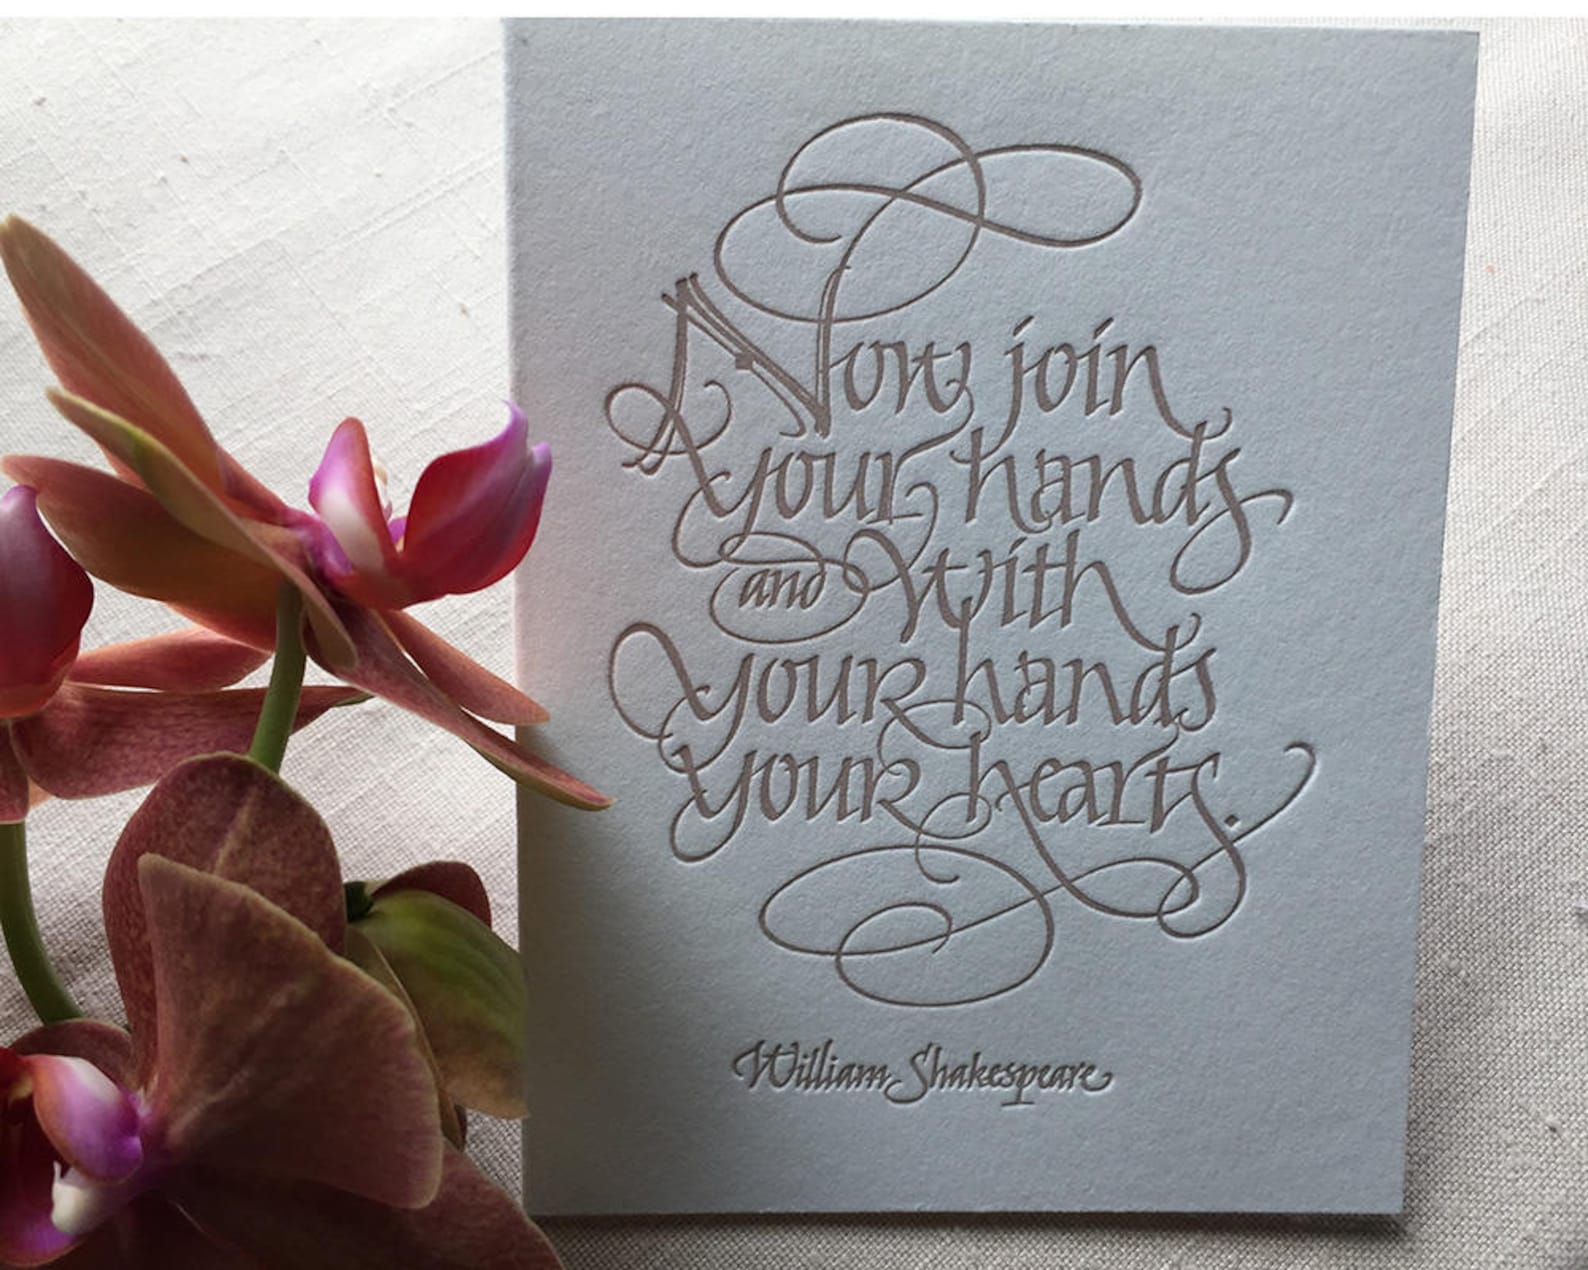 Now join
your hands
and with
your hands
your hearts.
William Shakespeare